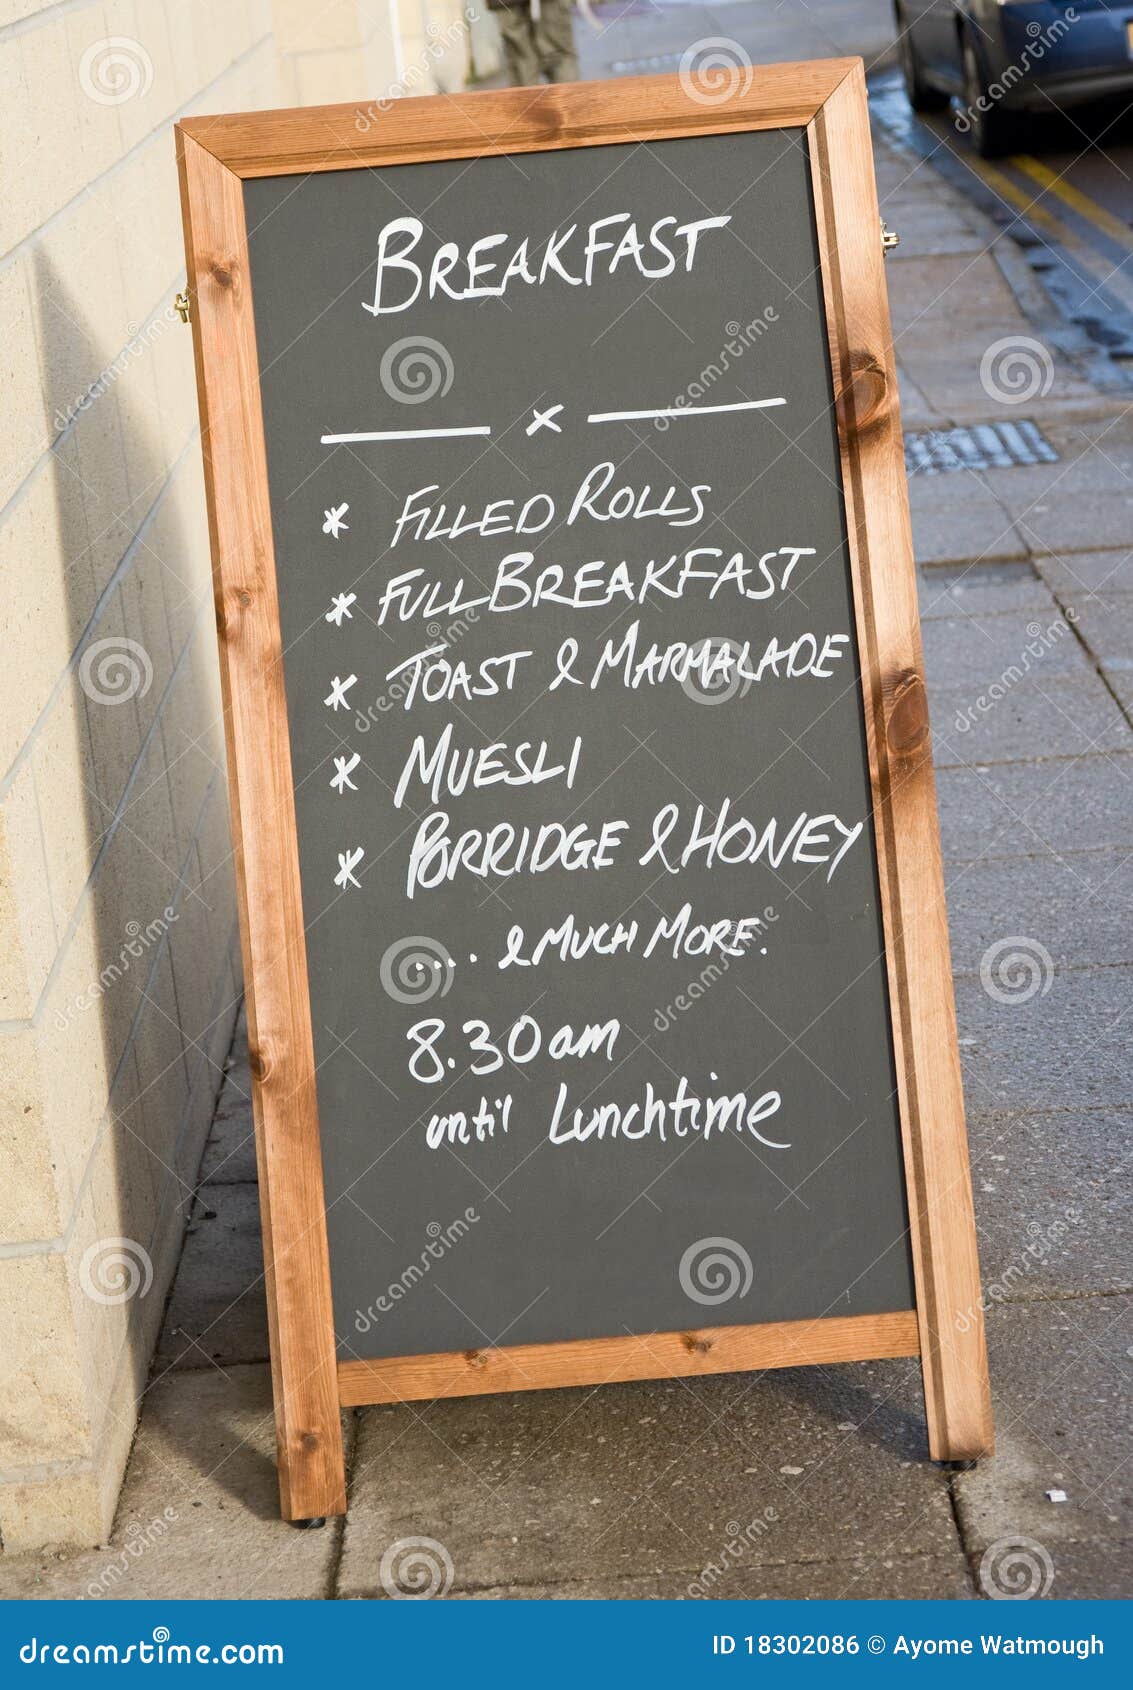 BREAKFAST
x
* FILLED ROLLS
* FULL BREAKFAST
* TOAST & MARMALADE
* MUESLI
* PORRIDGE & HONEY
.... & MUCH MORE.
8.30am
until Lunchtime
dreamstime.com
ID 18302086 © Ayome Watmough